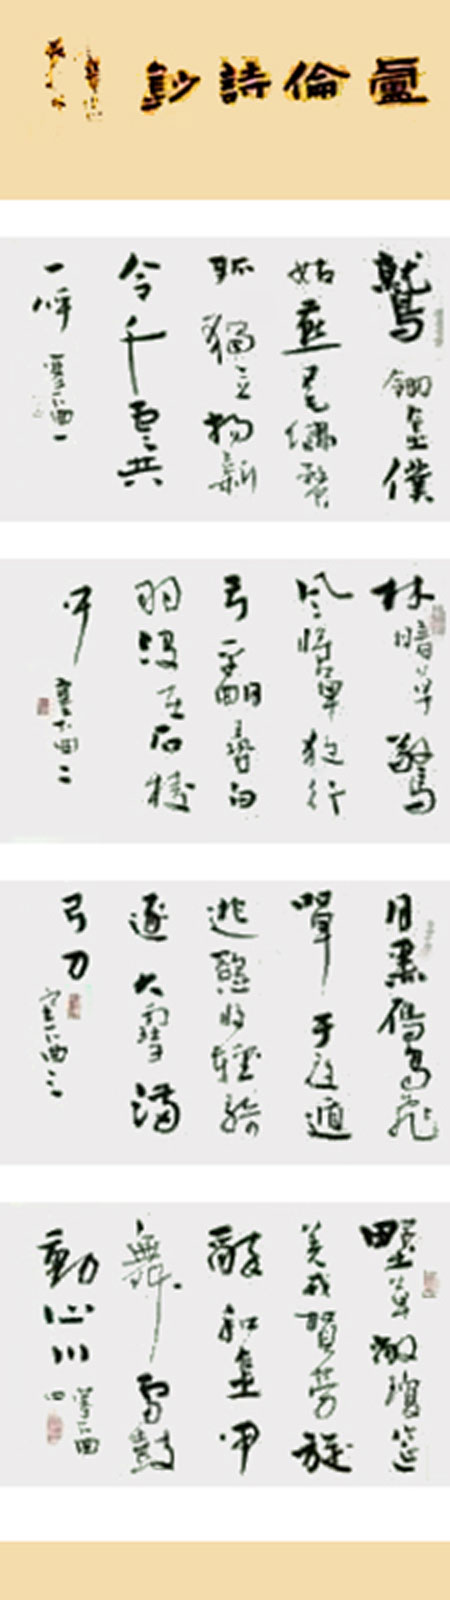 盧倫詩鈔
鷲翎金僕
姑燕尾繡蝥
弧獨立揚新
令千營共
一呼
塞下曲一
林暗草驚
風將軍夜引
弓平明尋白
羽沒在石棱
中
塞下曲二
月黑雁高飛
單于夜遁
逃欲將輕騎
逐大雪滿
弓刀
塞下曲三
野幕敞瓊筵
羌戎賀勞旋
醉和金甲
舞雷鼓
動山川
塞下曲
四